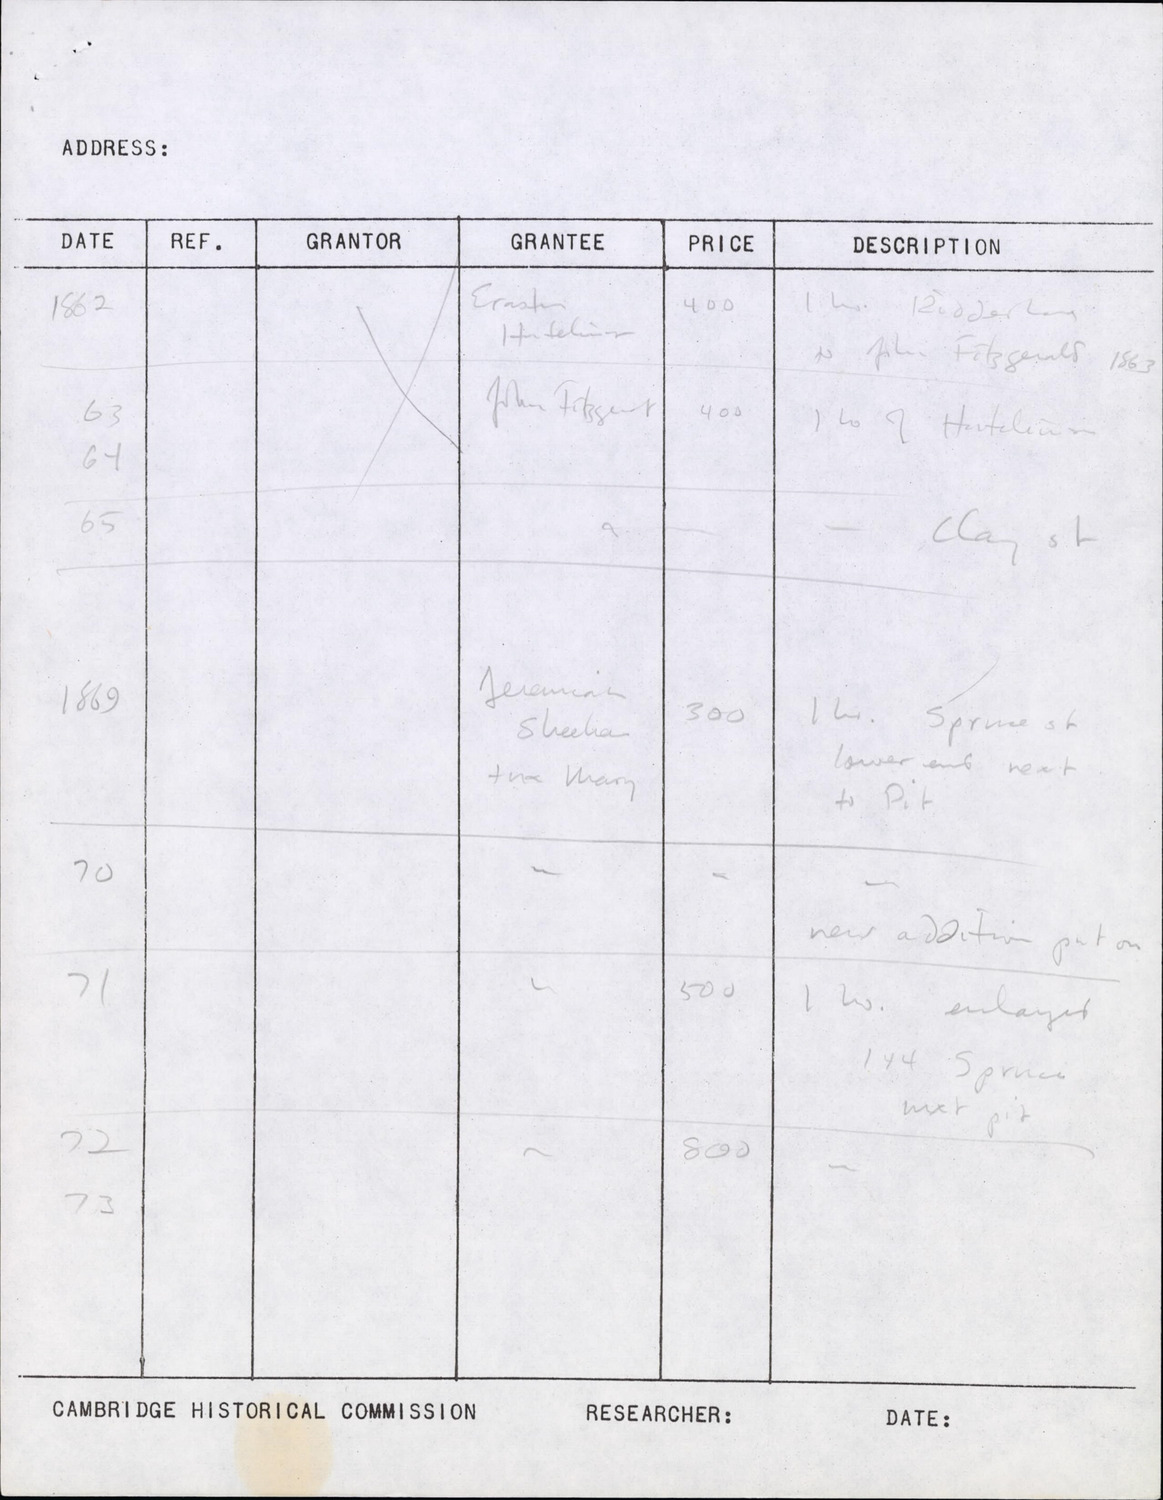 ADDRESS:
DATE REF. GRANTOR GRANTEE PRICE DESCRIPTION
1862 Erastus 400 1 ho. Ridder Lane
Hutchinson to John Fitzgerald 1863
63 John Fitzgerald 400 1 ho of Hutchinson
64
65 " — — Clay st
1869 Jeremiah 300 1 ho. Spruce st
Sheehan lower end next
+ux Mary to Pit
70 " " "
new addition put on
71 " 500 1 ho. enlarged
144 Spruce
next pit
72 " 800 "
73
CAMBRIDGE HISTORICAL COMMISSION RESEARCHER: DATE: